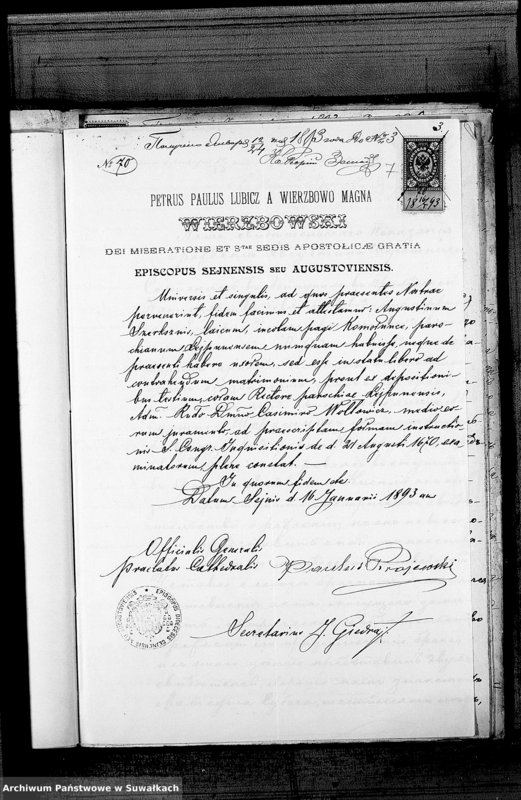 3
Получено Января 12/24 дня 1893 года № 3
Ксендз
№ 70
7
18 93
PETRUS PAULUS LUBICZ A WIERZBOWO MAGNA
WIERZBOWSKI
DEI MISERATIONE ET STAE SEDIS APOSTOLICÆ GRATIA
EPISCOPUS SEJNENSIS SEU AUGUSTOVIENSIS.
Universis et singulis, ad quos praesentes Nostrae
pervenerint, fidem facimus et attestamur: Augustinum
laicum, incolam pagi paro-
chianum nunquam habuisse, neque de
praesenti habere uxorem, sed esse in statu libero ad
contrahendum matrimonium, prout ex depositioni-
bus testium, coram Rectore parochiae
Adm. Rndo Dno Casimiro Woltowicz, medio eo-
rum juramento, ad praescriptam formam instructio-
nis S. Congr. Inquisitionis de d. 21 Augusti 1670, exa-
minatorum plene constat. —
In quorum fidem etc.
Datum Sejnis d. 16 Januarii 1893 an
Officialis Generalis
Praelatus Cathedralis
Secretarius J. Giedrajć
Archiwum Państwowe w Suwałkach